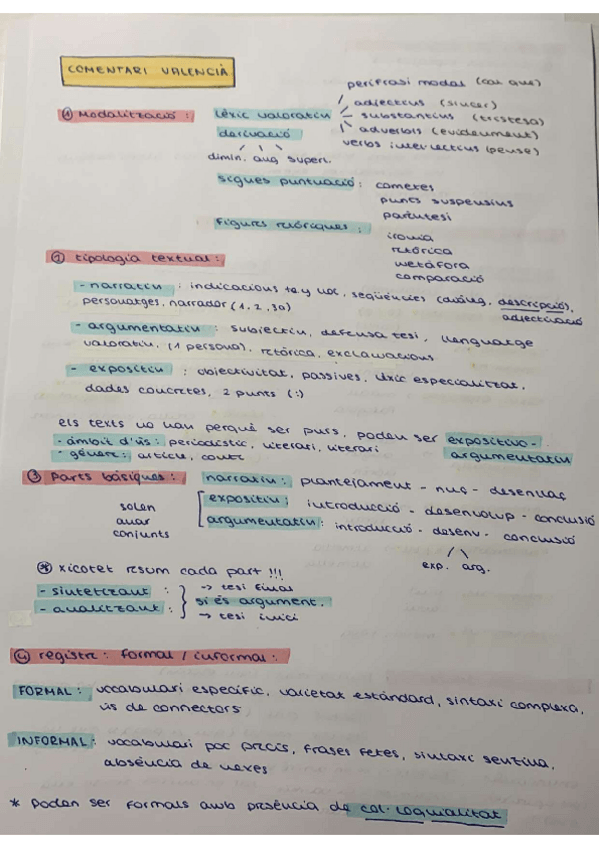 COMENTARI VALENCIÀ
perífrasi modal (cal que)
① Modalització: lèxic valoratiu
adjectius (sincer)
substantius (tristesa)
derivació
adverbis (evidentment)
verbs intel·lectius (pense)
dimin. aug. superl.
signes puntuació: cometes
punts suspensius
parèntesi
figures retòriques:
ironia
retòrica
metàfora
comparació
② tipologia textual:
- narratiu: indicacions te.y lloc, seqüències (diàleg, descripció),
personatges, narrador (1, 2, 3a) adjectivació
- argumentatiu: subjectiu, defensa tesi, llenguatge
valoratiu, (1 persona), retòrica, exclamacions
- expositiu: objectivitat, passives, lèxic especialitzat,
dades concretes, 2 punts (:)
els texts no han perquè ser purs, poden ser expositivo-
- àmbit d'ús: periodístic, literari, literari argumentatiu
- gènere: article, conte
③ Parts bàsiques: narratiu: plantejament - nuç - desenllaç
solen expositiu: introducció - desenvolup - conclusió
anar argumentatiu: introducció - desenv. - conclusió
conjunts
exp. arg.
⊛ xicotet resum cada part !!!
- sintetitzant: → tesi final
si és argument.
- analitzant: → tesi inici
④ registre: formal / informal:
FORMAL: vocabulari específic, varietat estàndard, sintaxi complexa,
ús de connectors
INFORMAL: vocabulari poc precís, frases fetes, sintaxi senzilla,
absència de nexes
* Poden ser formals amb presència de col·loquialitat